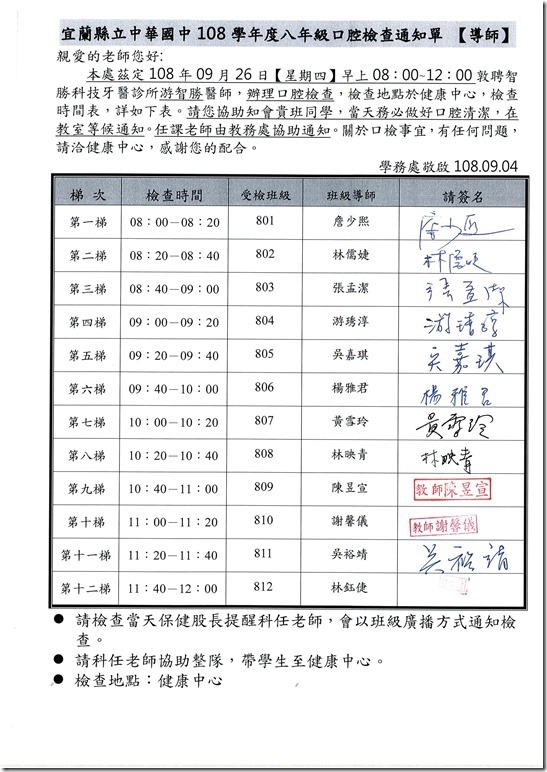 宜蘭縣立中華國中 108 學年度八年級口腔檢查通知單 【導師】
親愛的老師您好:
本處茲定 108 年 09 月 26 日【星期四】早上 08:00~12:00 敦聘智
勝科技牙醫診所游智勝醫師,辦理口腔檢查,檢查地點於健康中心,檢查
時間表,詳如下表。請您協助知會貴班同學,當天務必做好口腔清潔,在
教室等候通知。任課老師由教務處協助通知。關於口檢事宜,有任何問題,
請洽健康中心,感謝您的配合。
學務處敬啟 108.09.04
梯 次 檢查時間 受檢班級 班級導師 請簽名
第一梯 08:00－08:20 801 詹少熙
第二梯 08:20－08:40 802 林儒婕
第三梯 08:40－09:00 803 張孟潔 張孟潔
第四梯 09:00－09:20 804 游琇淳
第五梯 09:20－09:40 805 吳嘉琪 吳嘉琪
第六梯 09:40－10:00 806 楊雅君 楊雅君
第七梯 10:00－10:20 807 黃雪玲 黃雪玲
第八梯 10:20－10:40 808 林映青 林映青
第九梯 10:40－11:00 809 陳昱宣 教師陳昱宣
第十梯 11:00－11:20 810 謝馨儀 教師謝馨儀
第十一梯 11:20－11:40 811 吳裕靖 吳裕靖
第十二梯 11:40－12:00 812 林鈺倢
● 請檢查當天保健股長提醒科任老師,會以班級廣播方式通知檢
查。
● 請科任老師協助整隊,帶學生至健康中心。
● 檢查地點:健康中心